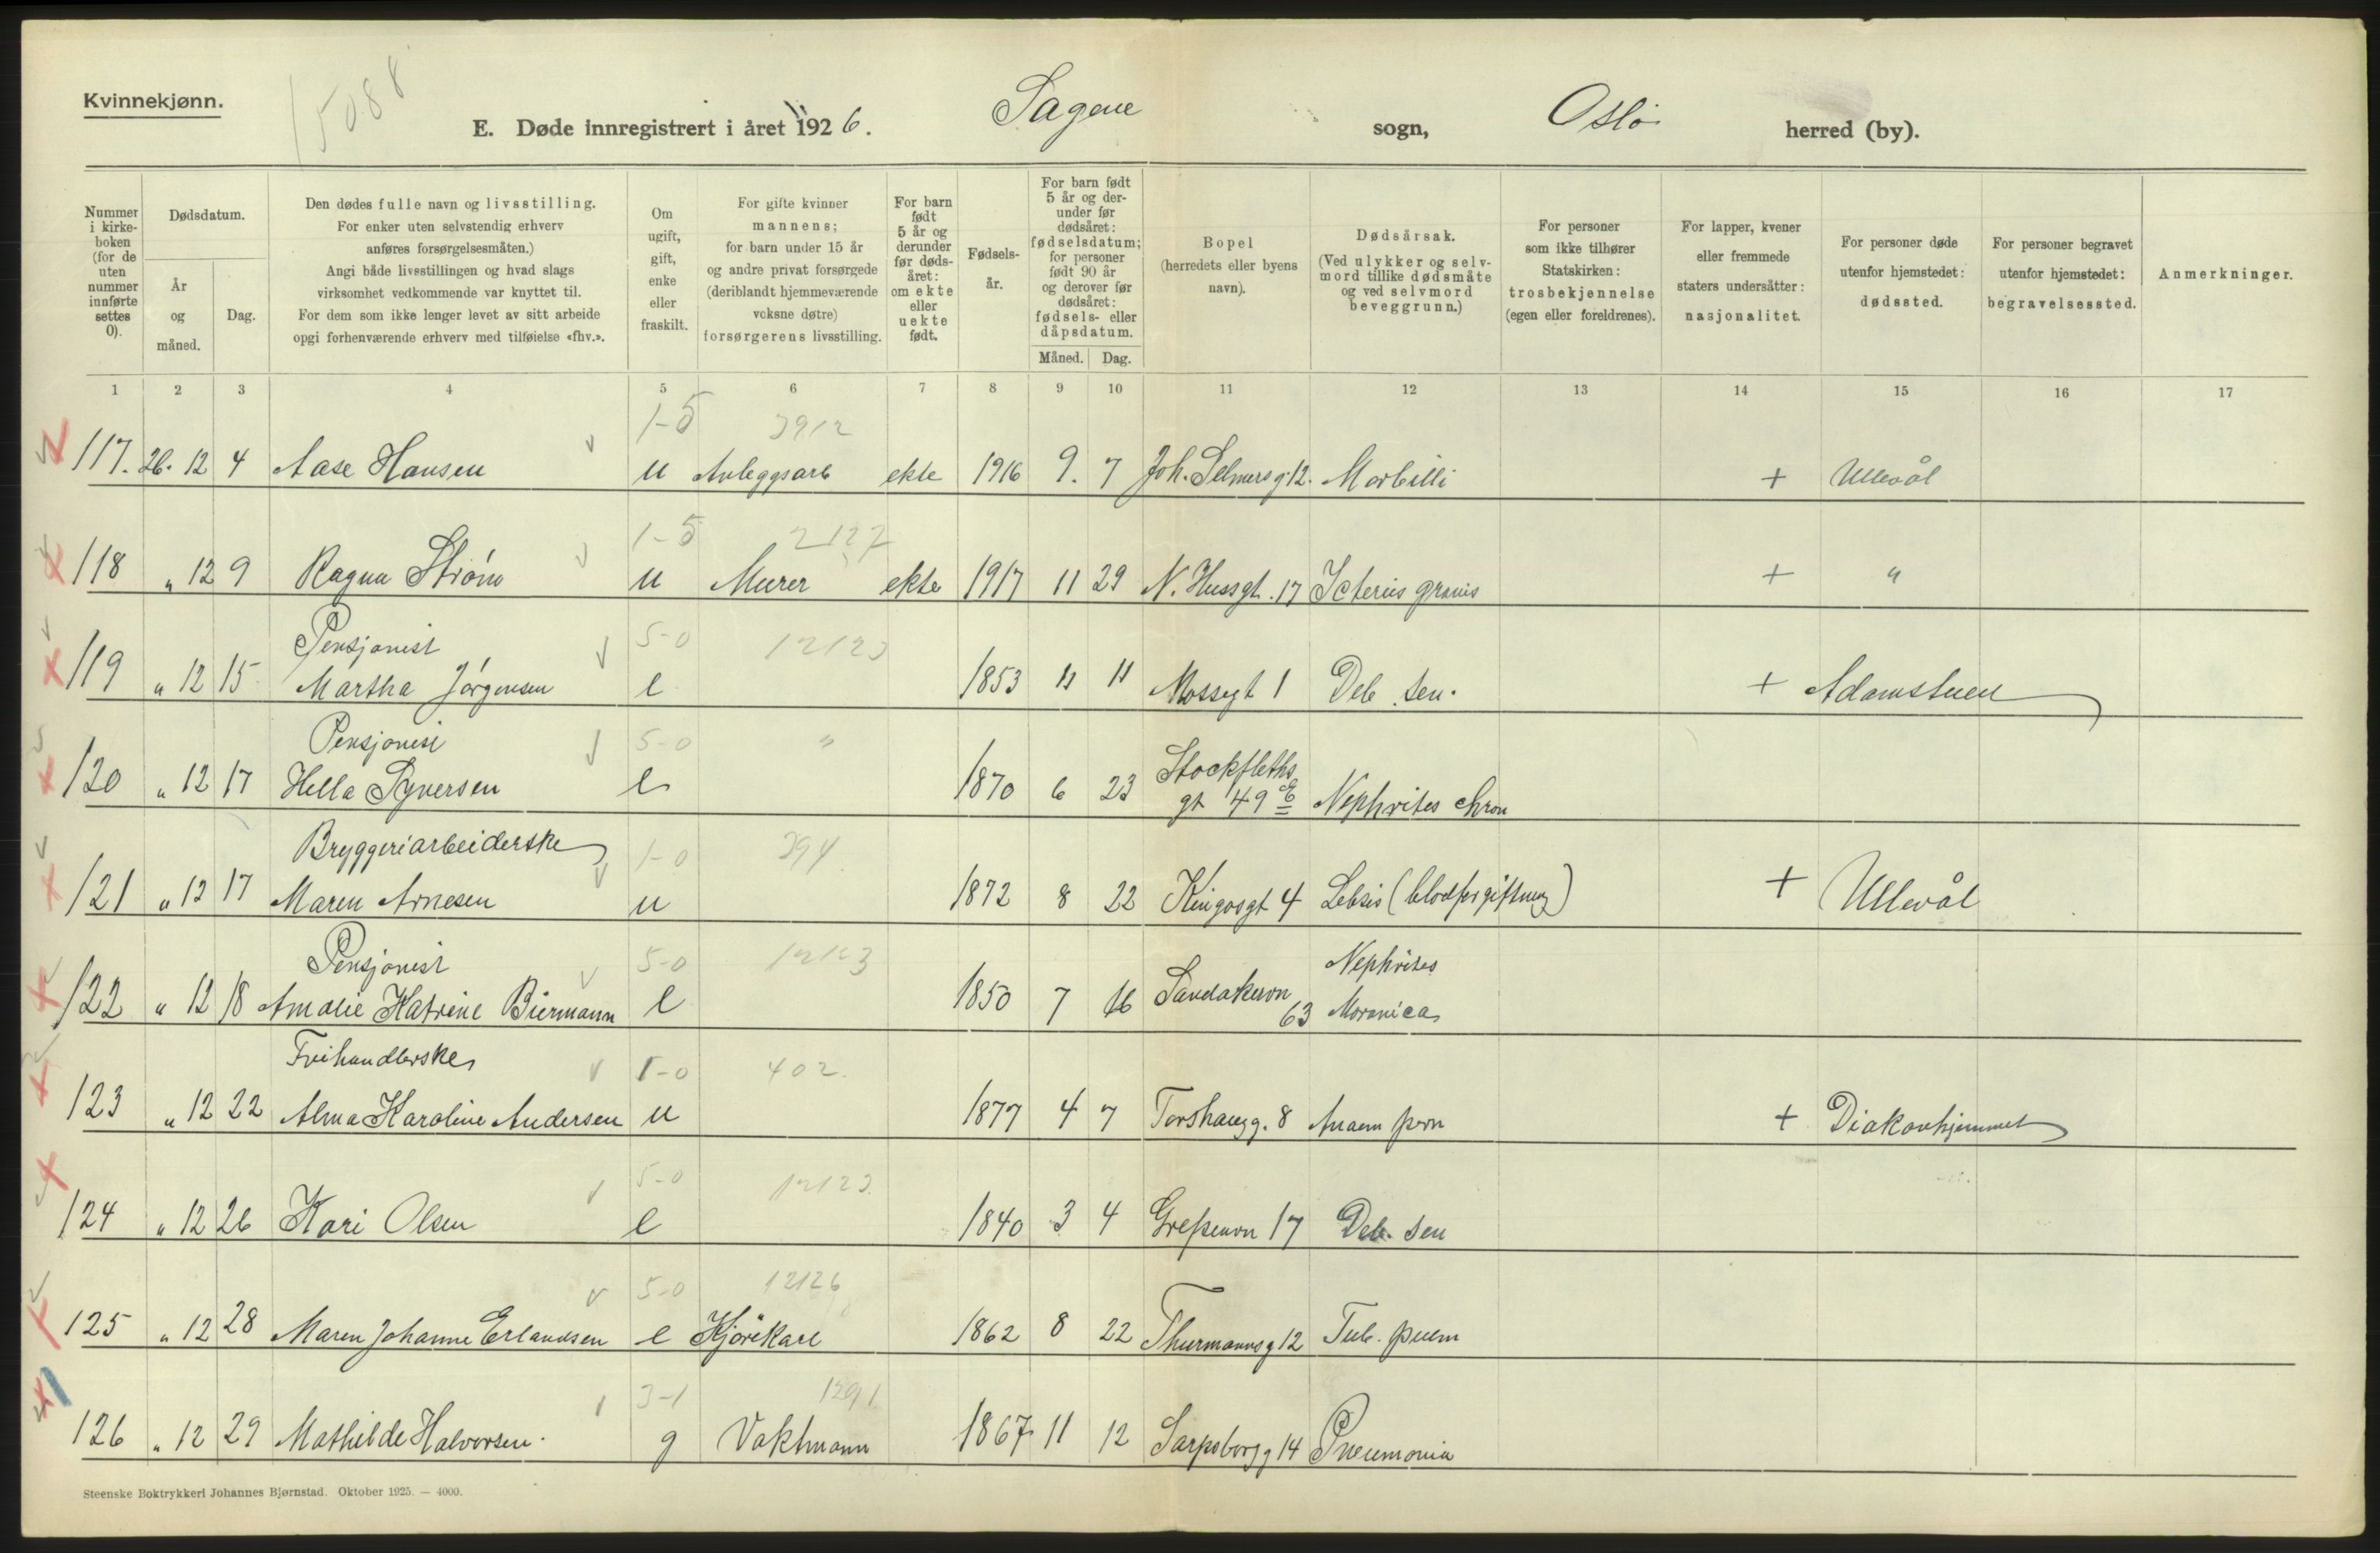 Kvinnekjønn.
15088
E. Døde innregistrert i året 1926. Sagene sogn, Oslo herred (by).
Nummer i kirkeboken (for de uten nummer innførte settes 0).
Dødsdatum.
År og måned.
Dag.
Den dødes fulle navn og livsstilling.
For enker uten selvstendig erhverv
anføres forsørgelsesmåten.)
Angi både livsstillingen og hvad slags
virksomhet vedkommende var knyttet til.
For dem som ikke lenger levet av sitt arbeide
opgi forhenværende erhverv med tilføielse «fhv.».
Om ugift, gift, enke eller fraskilt.
For gifte kvinner
mannens;
for barn under 15 år
og andre privat forsørgede
(deriblandt hjemmeværende
voksne døtre)
forsørgerens livsstilling.
For barn født 5 år og derunder før dødsåret: om ekte eller uekte født.
Fødselsår.
For barn født 5 år og derunder før dødsåret: fødselsdatum; for personer født 90 år og derover før dødsåret: fødsels- eller dåpsdatum.
Måned. Dag.
Bopel
(herredets eller byens
navn).
Dødsårsak.
(Ved ulykker og selvmord tillike dødsmåte og ved selvmord beveggrunn.)
For personer
som ikke tilhører
Statskirken:
trosbekjennelse
(egen eller foreldrenes).
For lapper, kvener
eller fremmede
staters undersåtter:
nasjonalitet.
For personer døde
utenfor hjemstedet:
dødssted.
For personer begravet
utenfor hjemstedet:
begravelsessted.
Anmerkninger.
1 2 3 4 5 6 7 8 9 10 11 12 13 14 15 16 17
1-5 3912
117. 26. 12 4 Aase Hansen u Anleggsarb ekte 1916 9. 7 Joh. Selmersg 12. Morbilli + Ullevål
1-5 2127
118 " 12 9 Ragna Strøm u Murer ekte 1917 11 29 N. Hussgt. 17 Icterus gravis + "
Pensjonist 5-0 12123
119 " 12 15 Martha Jørgensen e 1853 11 Mossegt 1 Deb. sen. + Adamstuen
Pensjonist 5-0 "
120 " 12 17 Hella Syversen e 1870 6 23 Stockfleths gt 49 E Nephrites chron
Bryggeriarbeiderske 1-0 394
121 " 12 17 Maren Arnesen u 1872 8 22 Kingosgt 4 Sebsis (blodforgiftning) + Ullevål
Pensjonist 5-0 12123
122 " 12 18 Amalie Katrine Biermann e 1850 7 16 Sandakervn 63 Nephrites
123 " 12 22 Alma Karoline Andersen u 1877 4 7 Torshaugg. 8 Anaem pern + Diakonhjemmet
Frihandlerske 1-0 402
5-0 12123
124 " 12 26 Kari Olsen e 1840 3 4 Grefsenvn 17 Deb. sen
5-0 12126
125 " 12 28 Maren Johanne Erlandsen e Kjørekarl 1862 8 22 Thurmannsg 12 Tub. pulm
3-1 1291
126 " 12 29 Mathilde Halvorsen. g Vaktmann 1867 11 12 Sarpsborgg 14 Pneumonia
Steenske Boktrykkeri Johannes Bjørnstad. Oktober 1925. — 4000.